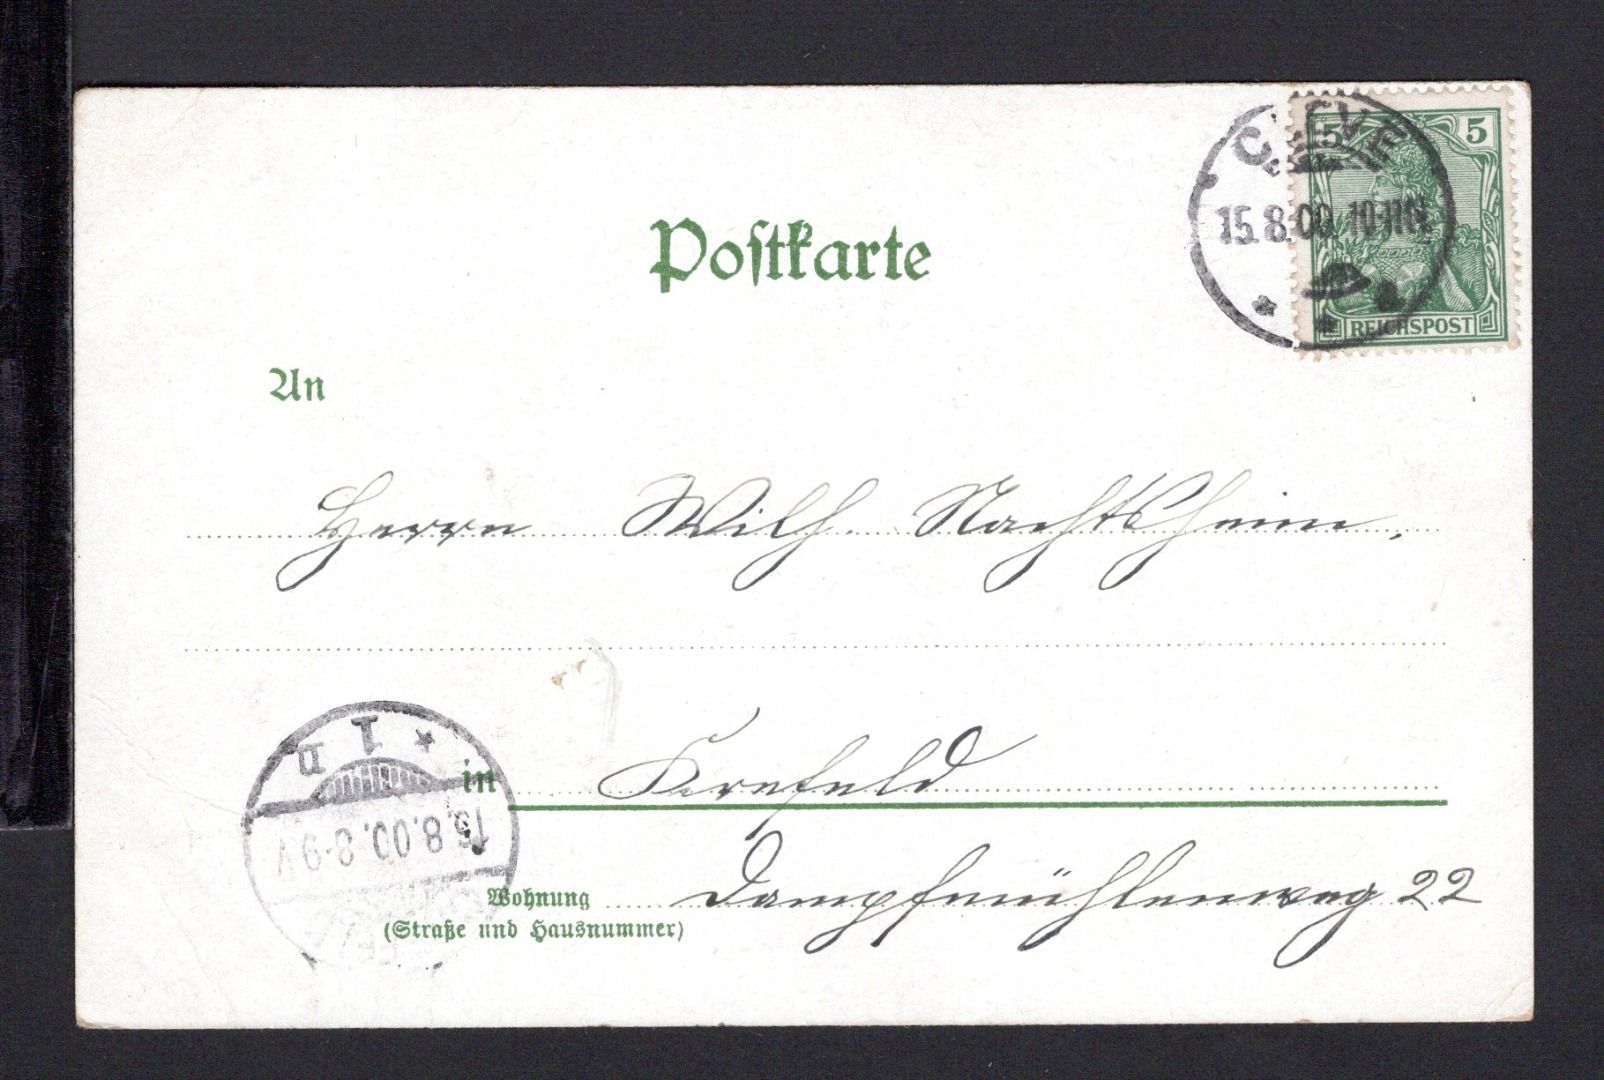 CLEVE
15.8.00. 10-11N
5 5
REICHSPOST
Postkarte
An
Herrn Wilh. Nachtsheim,
in Krefeld
Wohnung Dampfmühlenweg 22
(Straße und Hausnummer)
1 n
15.8.00. 8-9V